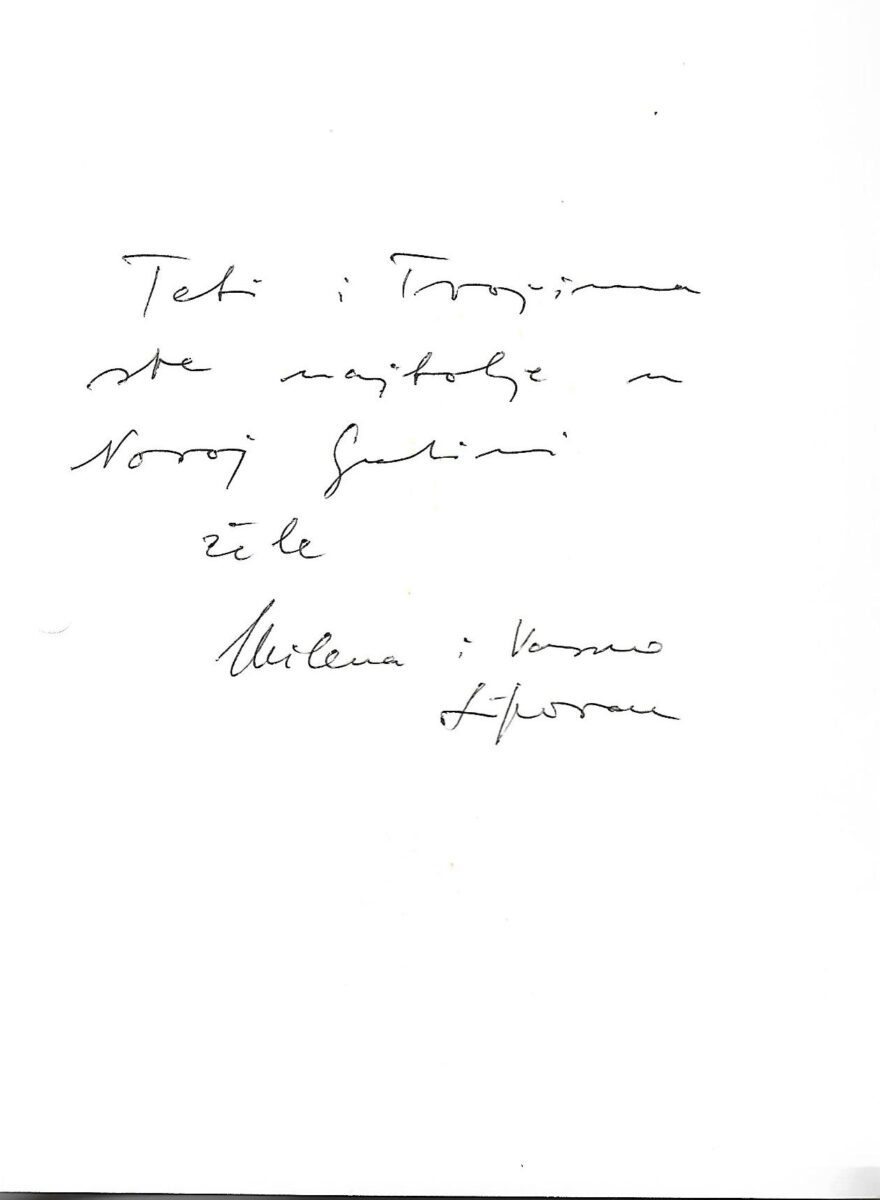 Tebi i Tvojima
sve najbolje u
Novoj Godini
žele
Milena i Vasno
Lipovac